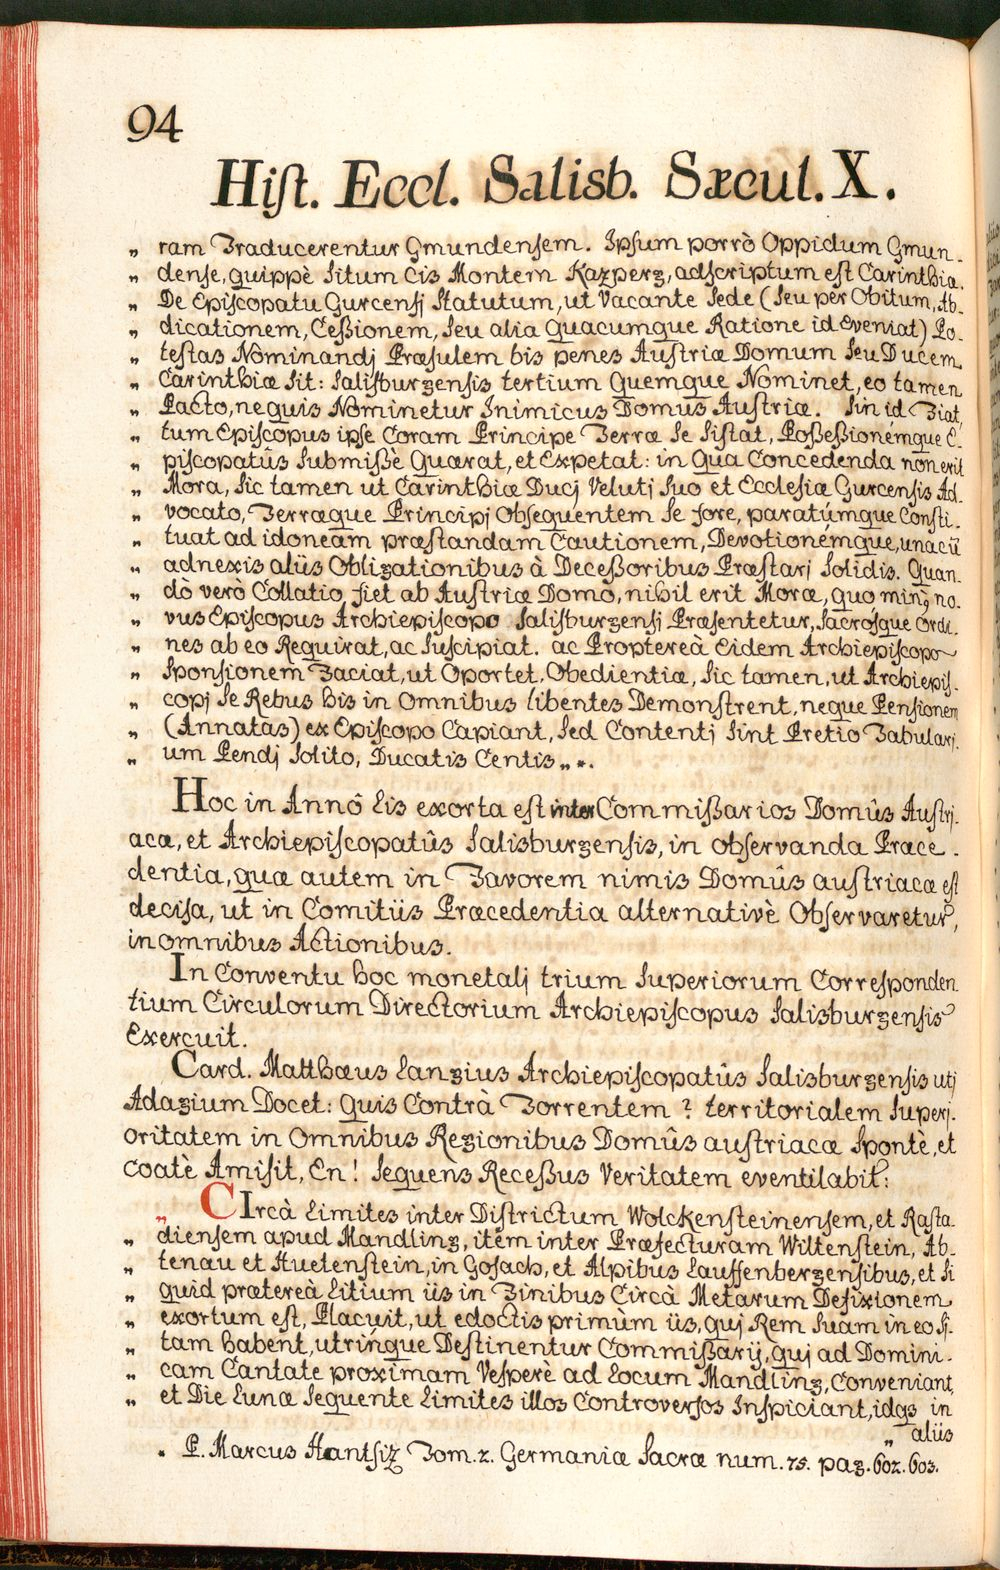 94
Hiſt. Eccl. Salisb. Sæcul. X.
„ ram Traducerentur Gmundenſem. Ipſum porrò Oppidum Gmun-
„ denſe, quippè Situm Cis Montem Kazperg, adſcriptum eſt Carinthiæ.
„ De Epiſcopatu Gurcenſj Statutum, ut Vacante Sede (Seu per Obitum, Ab-
„ dicationem, Ceßionem, Seu alia Quacumque Ratione id Eveniat) Po-
„ teſtas Nominandj Præſulem bis penes Auſtriæ Domum Seu Ducem
„ Carinthiæ Sit: Saliſburgenſis tertium Quemque Nominet, eo tamen
„ Pacto, nequis Nominetur Inimicus Domûs Auſtriæ. Sin id Fiat,
„ tum Epiſcopus ipſe Coram Principe Terræ Se Siſtat, Poßeßionémque E-
„ piſcopatûs Submißè Quærat, et Expetat: in Qua Concedenda non erit
„ Mora, Sic tamen ut Carinthiæ Ducj Velutj Suo et Eccleſiæ Gurcenſis Ad-
„ vocato, Terræque Principj Obſequentem Se fore, paratúmque Conſti-
„ tuat ad idoneam præſtandam Cautionem, Devotionémque, unacũ
„ adnexis aliis Obligationibus à Deceßoribus Præſtarj Solidis. Quan-
„ dò verò Collatio fiet ab Auſtriæ Domo, nihil erit Moræ, quo min9, no-
„ vus Epiſcopus Archiepiſcopo Saliſburgenſi Præſentetur, Sacróſque Ordi-
„ nes ab eo Requirat, ac Suſcipiat. ac Propterea Eidem Archiepiſcopo
„ Sponſionem Faciat, ut Oportet, Obedientiæ, Sic tamen, ut Archiepiſ-
„ copj Se Rebus his in Omnibus libentes Demonſtrent, neque Penſionem
„ (Annatas) ex Epiſcopo Capiant, Sed Contentj Sint Pretio Tabularj-
„ um Pendj Solito, Ducatis Centis „ *.
Hoc in Annô Lis exorta eſt inter Commißarios Domûs Auſtrj-
acæ, et Archiepiſcopatûs Salisburgenſis, in obſervanda Præce-
dentia, quæ autem in Favorem nimis Domûs auſtriacæ eſt
deciſa, ut in Comitiis Præcedentia alternativè Obſervaretur,
in omnibus Actionibus.
In Conventu hoc monetalj trium Superiorum Correſponden
tium Circulorum Directorium Archiepiſcopus Salisburgenſis
Exercuit.
Card. Matthæus Langius Archiepiſcopatûs Salisburgenſis utj
Adagium Docet: Quis Contrà Torrentem? territorialem Superj-
oritatem in Omnibus Regionibus Domûs auſtriacæ Sponte, et
Coatè Amiſit, En! Sequens Receßus Veritatem eventilabit:
„ CIrcà Limites inter Districtum Wolckenſteinenſem, et Raſta-
„ dienſem apud Mandling, item inter Præfecturam Wiltenſtein, Ab-
„ tenau et Huetenſtein, in Goſach, et Alpibus Lauffenbergenſibus, et Si
„ quid prætereà Litium iis in Finibus Circà Metarum Defixionem
„ exortum eſt, Placuit, ut edoctis primùm iis, quj Rem Suam in eo Sj-
„ tam habent, utrinque Deſtinentur Commißarij, quj ad Domini-
„ cam Cantate proximam Veſperè ad Locum Mandling, Conveniant,
„ et Die Lunæ Sequente Limites illos Controverſos Inſpiciant, idqs in
„ aliis
* P. Marcus Hantſiz Tom. 2. Germaniæ Sacræ num. 75. pag. 602. 603.